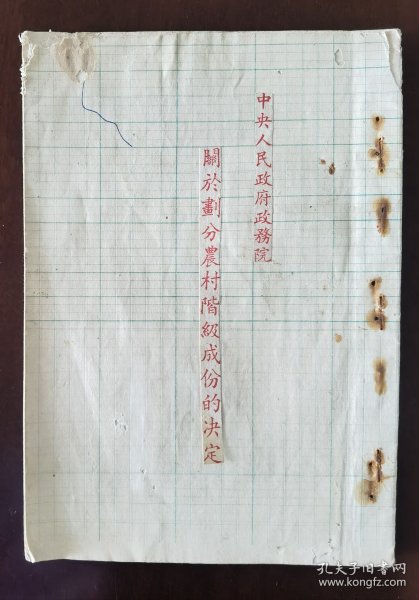 中央人民政府政務院
關於劃分農村階級成份的决定
孔夫子旧书网
www.kongfz.com